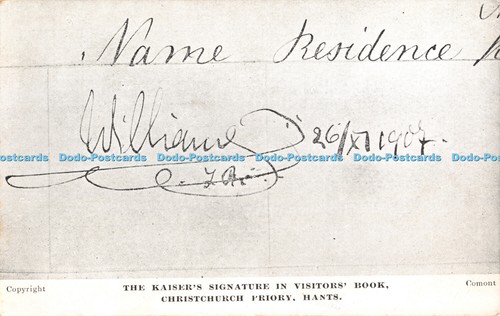 Name Residence
William 26/XI 1907.
I. R.
Dodo-Postcards Dodo-Postcards Dodo-Postcards Dodo-Postcards Dodo-Postcards
Copyright THE KAISER'S SIGNATURE IN VISITORS' BOOK, Comont
CHRISTCHURCH PRIORY, HANTS.